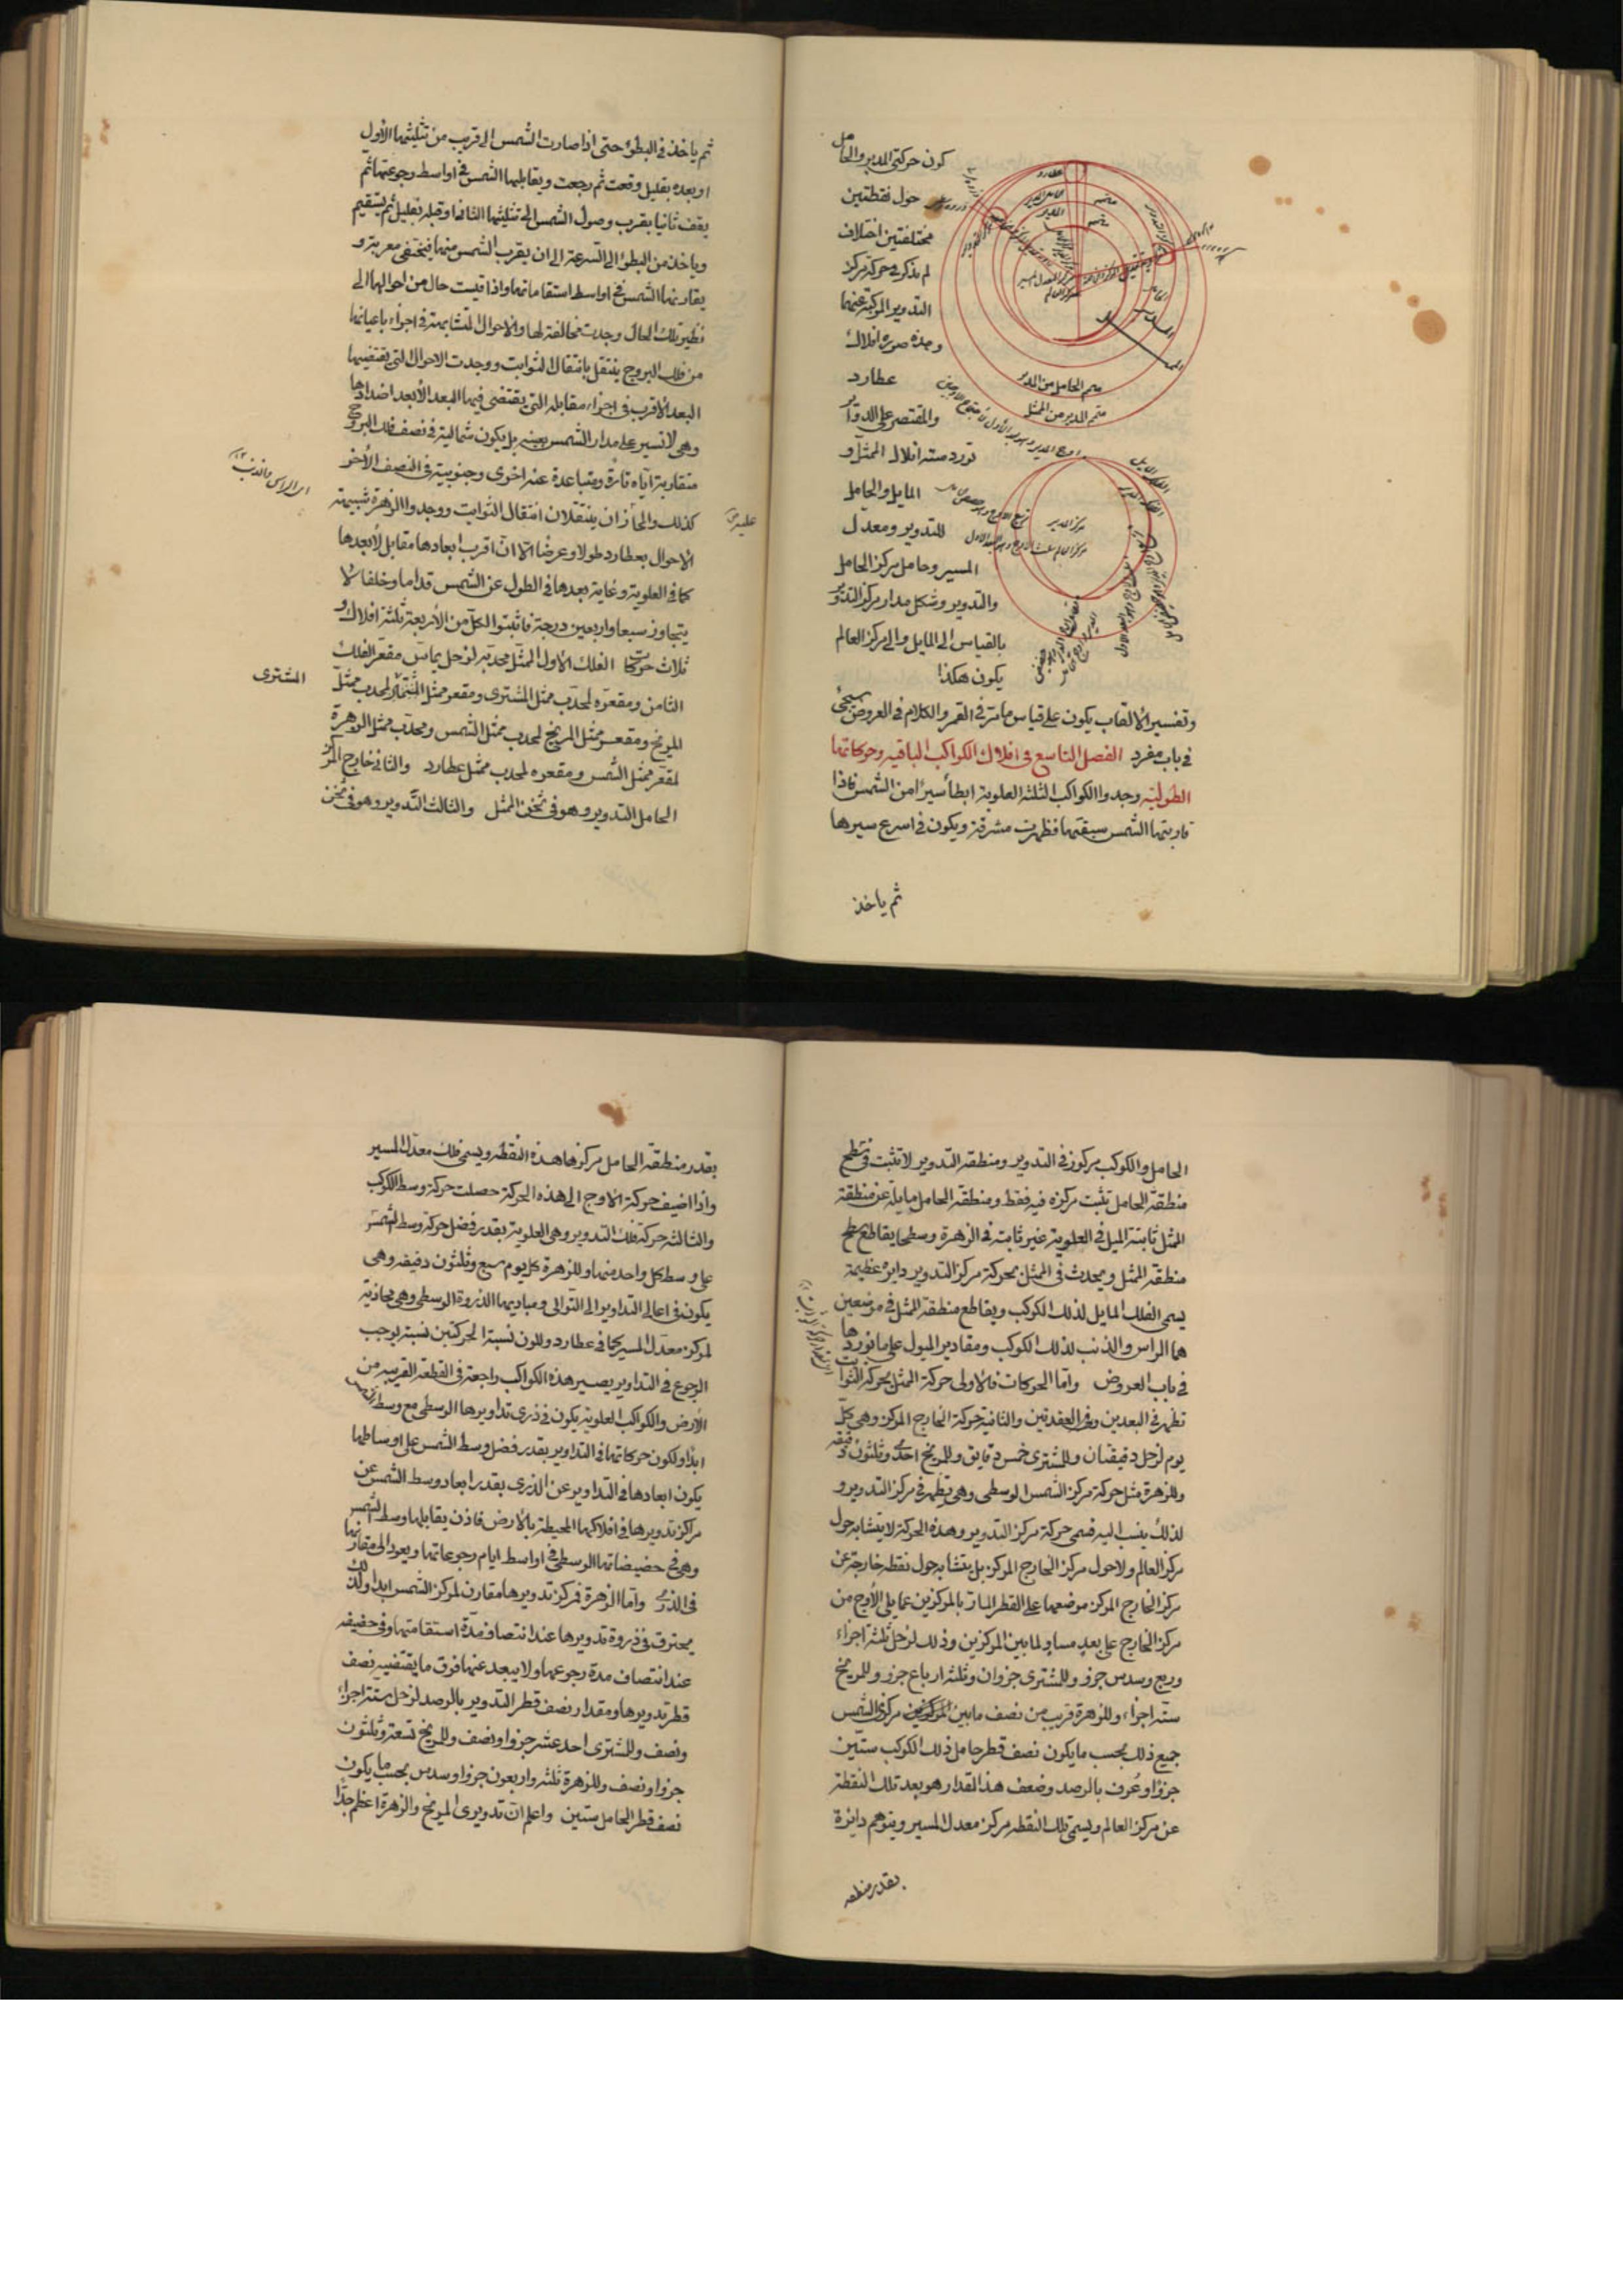 كون حركتي المدير والحامل
حول نقطتين
مختلفتين اختلاف
لم يذكر في حركة مركز
التدوير المركبة عنهما
وهذه صورة افلاك
عطارد
والمقتصر على الدواير
تورد ستة افلاك الممثل و
المايل والحامل
للتدوير ومعدل
المسير وحامل مركز الحامل
والتدوير وشكل مدار مركز التدوير
بالقياس الى المايل والى مركز العالم
يكون هكذا
متمم الحامل من المدير
متمم المدير من الممثل
مركز المدير
وتفسير الالقاب يكون على قياس ما مر في القمر والكلام في العروض سيجئ
في باب مفرد الفصل التاسع في افلاك الكواكب الباقيه وحركاتها
الطولية وجدوا الكواكب الثلثة العلوية ابطأ سيرا من الشمس فاذا
قاربتها الشمس سبقتها فظهرت مشرقة ويكون في اسرع سيرها
ثم ياخذ
ثم ياخذ في البطؤ حتى اذا صارت الشمس الى قريب من تثليثها الاول
او بعده بقليل وقعت ثم رجعت ويقابلها الشمس في اواسط رجوعتها ثم
يقف ثانيا بقرب وصول الشمس الى تثليثها الثاني او قبله بقليل ثم يستقيم
وياخذ من البطؤ الى السرعة الى ان يقرب الشمس منها فيختفى مغربة و
يقارنها الشمس في اواسط استقاماتها واذا قيست حال من احوالها الى
نظير تلك الحال وجدت مخالفة لها والاحوال المتشابهة في اجزاء باعيانها
من فلك البروج ينتقل بانتقال الثوابت ووجدت الاحوال التي يقتضيها
البعد الاقرب في اجزاء مقابله التي يقتضى فيها البعد الابعد اضدادها
وهي لا تسير على مدار الشمس بعينه بل يكون شمالية في نصف فلك البروج
متقاربة اياه تارة ومتباعدة عنه اخرى وجنوبية في النصف الاخر
كذلك والمجازان ينتقلان انتقال الثوابت ووجدوا الزهرة شبيهة
الاحوال بعطارد طولا وعرضا الا ان اقرب ابعادها مقابل لابعدها
كما في العلوية وغاية بعدها في الطول عن الشمس قداما وخلفا لا
يتجاوز سبعا واربعين درجة فاثبتوا لكل من الاربعة ثلثة افلاك و
ثلاث حركات الفلك الاول الممثل محدبه لزحل يماس مقعر الفلك
الثامن ومقعره لمحدب ممثل المشترى ومقعر ممثل لمحدب ممثل
المشترى
المريخ ومقعر ممثل المريخ لمحدب ممثل الشمس ومحدب ممثل الزهرة
لمقعر ممثل الشمس ومقعره لمحدب ممثل عطارد والثاني خارج المركز
الحامل للتدوير وهو في ثخن الممثل والثالث التدوير وهو في ثخن
الحامل والكوكب مركوز في التدوير ومنطقة التدوير لا تثبت في سطح
منطقة الحامل تثبت مركزه فيه فقط ومنطقة الحامل مايلة عن منطقة
الممثل ثابتة الميل في العلوية غير ثابتة في الزهرة وسطحها يقاطع سطح
منطقة الممثل ويحدث في الممثل بحركة مركز التدوير دايرة عظيمة
يسمى الفلك المايل لذلك الكوكب ويقاطع منطقة الممثل في موضعين
هما الراس والذنب لذلك الكوكب ومقادير الميول على ما نوردها
في باب العروض واما الحركات فالاولى حركة الممثل بحركة الثوابت
تظهر في البعدين وفي العقدتين والثانية حركة الخارج المركز وهي كل
يوم لزحل دقيقتان وللمشترى خمس دقايق وللمريخ احدى وثلثون دقيقة
وللزهرة مثل حركة مركز الشمس الوسطى وهي تظهر في مركز التدوير و
لذلك ينسب اليه فيسمى حركة مركز التدوير وهذه الحركة لا يتشابه حول
مركز العالم ولا حول مركز الخارج المركز بل يتشابه حول نقطة خارجة عن
مركز الخارج المركز موضعها على القطر المار بالمركزين مما يلى الاوج من
مركز الخارج على بعد مساو لما بين المركزين وذلك لزحل ثلثة اجزاء
وربع وسدس جزو وللمشترى جزوان وثلثة ارباع جزو وللمريخ
ستة اجزاء وللزهرة قريب من نصف ما بين مركزى الشمس
جميع ذلك بحسب ما يكون نصف قطر حامل ذلك الكوكب ستين
جزؤا وعرف بالرصد وضعف هذا المقدار هو بعد تلك النقطة
عن مركز العالم ويسمى تلك النقطه مركز معدل المسير ويتوهم دايرة
بقدر منطقه
بقدر منطقة الحامل مركزها هذه النقطه ويسمى فلك معدل المسير
واذا اضيف حركة الاوج الى هذه الحركة حصلت حركة وسط الكوكب
والثالثه حركة فلك التدوير وهي للعلوية بقدر فضل حركة وسط الشمس
على وسط كل واحد منها وللزهرة كل يوم سبع وثلثون دقيقه وهي
يكون في اعالى التداوير الى التوالى ومباديها الذروة الوسطى وهي محاذية
لمركز معدل المسير كما في عطارد ولكون نسبة الحركتين نسبة يوجب
الرجوع في التداوير يصير هذه الكواكب راجعة في القطعة القريبه من
الارض والكواكب العلوية يكون في ذرى تداويرها الوسطى مع وسط الشمس
ابدا ولكون حركاتها في التداوير بقدر فضل وسط الشمس على اوساطها
يكون ابعادها في التداوير عن الذرى بقدر ابعاد وسط الشمس عن
مراكز تدويرها في افلاكها المحيطة بالارض فاذن يقابلها وسط الشمس
وهي في حضيضاتها الوسطى في اواسط ايام رجوعاتها ويعود الى مقارنتها
في الذرى واما الزهرة فمركز تدويرها مقارن لمركز الشمس ابدا ولذلك
يحترق في ذروة تدويرها عند انتصاف مدة استقامتها وفي حضيضه
عند انتصاف مدة رجوعها ولا يبعد عنها فوق ما يقتضيه نصف
قطر تدويرها ومقدار نصف قطر التدوير بالرصد لزحل ستة اجزاء
ونصف وللمشترى احد عشر جزوا ونصف وللمريخ تسعة وثلثون
جزوا ونصف وللزهرة ثلثه واربعون جزوا وسدس بحسب ما يكون
نصف قطر الحامل ستين واعلم ان تدويرى المريخ والزهرة اعظم جدا